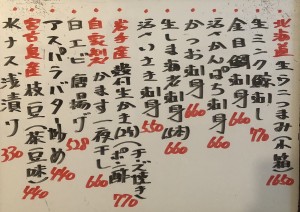 北海道産生ウニつまみ(小箱) 1650
生ミンク鯨刺し 770
金目鯛刺身 660
活〆かんぱち刺身 660
活〆かつお刺身 660
生しま海老刺身(5本) 660
活〆いさき刺身 550
岩手産殻付生かき(2ヶ)(チーズ焼き)(ポン酢) 770
自家製かます一夜干し 660
白エビ唐揚げ 528
アスパラバター炒め 440
宮古島産枝豆(茶豆味) 440
水ナス浅漬け 330